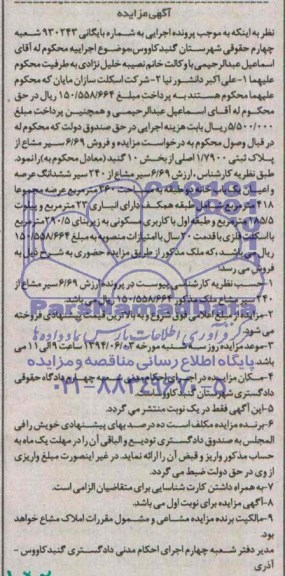 آگهی مزایده
نظر به اینکه به موجب پرونده اجرایی به شماره بایگانی ۹۳۰۲۴۳ شعبه
چهارم حقوقی شهرستان گنبدکاووس،موضوع اجراییه محکوم له آقای
اسماعیل عبدالرحیمی با وکالت خانم نصیبه خلیل نژادی به طرفیت محکوم
علیهما ۱-علی اکبر دانشور نیا ۲-شرکت اسکلت سازان مایان که محکوم
علیهما محکوم هستند به پرداخت مبلغ ۱۵۰/۵۵۸/۶۶۴ ریال در حق
محکوم له آقای اسماعیل عبدالرحیمی و همچنین پرداخت مبلغ
۵/۵۰۰/۰۰۰ریال بابت هزینه اجرایی در حق صندوق دولت که محکوم له
در قبال وصول محکوم به درخواست مزایده و فروش ۶/۶۹ سیر مشاع از
پلاک ثبتی ۱/۷۹۰۰ اصلی از بخش ۱۰ گنبد (معادل محکوم به)را نمود.
طبق نظریه کارشناس،ارزش ۶/۶۹سیر مشاع از ۲۴۰ سیر ششدانگ عرصه
و اعیان یک باب خانه دو طبقه به مساحت ۲۶۰ مترمربع عرصه مجموعا
۴۱۸ مترمربع شامل طبقه همکف دارای انباری ۲۳ مترمربع و پیلوت
۱۸۵/۵ مترمربع و طبقه اول با کاربری مسکونی به زیربنای ۲۹۰/۵مترمربع
با اسکلت فلزی با قدمت ۲۰ سال با امتیازات منصوبه به مبلغ ۱۵۰/۵۵۸/۶۶۴
ریال می باشد،که ملک مذکور از طریق مزایده حضوری به شرح ذیل به
فروش می رسد:
۱-حسب نظریه کارشناسی پیوست در پرونده ارزش ۶/۶۹ سیر مشاع از
۲۴۰ سیر مشاع ملک مذکور ۱۵۰/۵۵۸/۶۶۴ ریال می باشد.
۲-مزایده از مبلغ اعلامی فوق شروع و به بالاترین قیمت پیشنهادی فروخته
می شود.
۳-موعد مزایده روز سه شنبه مورخه ۱۳۹۴/۰۶/۰۳ ساعت ۹ الی ۱۱ می
باشد.
۴-مکان مزایده در اجرای احکام مدنی شعبه چهارم دادگاه حقوقی
دادگستری شهرستان گنبد کاووس
۵-این آگهی فقط در یک نوبت منتشر می گردد.
۶-برنده مزایده مکلف است ده درصد بهای پیشنهادی خویش را فی
المجلس به صندوق دادگستری تودیع و الباقی آن را در مهلت یک ماه به
حساب مذکور واریز و قبض آن را ارائه نماید. در غیر اینصورت مبلغ واریزی
از وی در حق دولت ضبط می گردد.
۷-به همراه داشتن کارت شناسایی برای متقاضیان الزامی است.
۸-آگهی مزایده برای نوبت اول می باشد.
۹-مالکیت برنده مزایده مشاعی و مشمول مقررات املاک مشاع خواهد
بود.
مدیر دفتر شعبه چهارم اجرای احکام مدنی دادگستری گنبد کاووس -
آذری
پایگاه اطلاع رسانی مناقصه و مزایده
۰۲۱-۸۸۳۴۹۶۷۰-۵